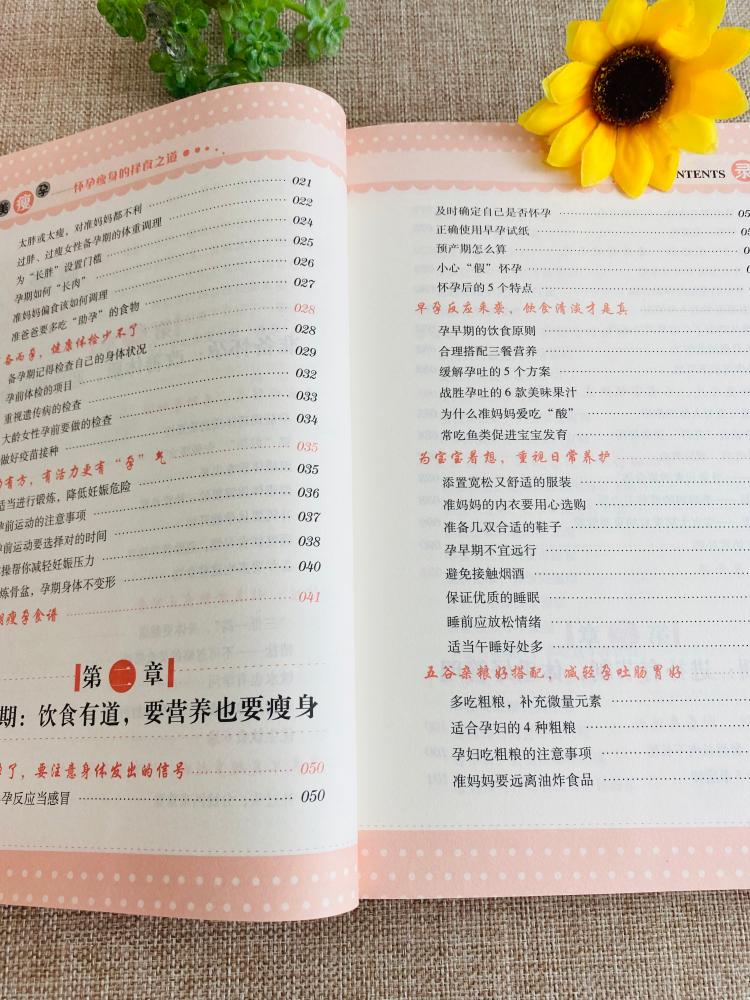 美瘦孕——怀孕瘦身的择食之道
太胖或太瘦，对准妈妈都不利 021
过胖、过瘦女性备孕期的体重调理 022
为“长胖”设置门槛 024
孕期如何“长肉” 025
准妈妈偏食该如何调理 026
准爸爸要多吃“助孕”的食物 027
备而孕，健康体检少不了 028
备孕期记得检查自己的身体状况 028
孕前体检的项目 029
重视遗传病的检查 032
大龄女性孕前要做的检查 033
做好疫苗接种 034
有方，有活力更有“孕”气 035
适当进行锻炼，降低妊娠危险 035
孕前运动的注意事项 036
孕前运动要选择对的时间 037
操帮你减轻妊娠压力 038
炼骨盆，孕期身体不变形 040
期瘦孕食谱 041
第二章
期：饮食有道，要营养也要瘦身
了，要注意身体发出的信号 050
孕反应当感冒 050
CONTENTS 录
及时确定自己是否怀孕 05
正确使用早孕试纸 05
预产期怎么算 0
小心“假”怀孕 0
怀孕后的5个特点
早孕反应来袭，饮食清淡才是真
孕早期的饮食原则
合理搭配三餐营养
缓解孕吐的5个方案
战胜孕吐的6款美味果汁
为什么准妈妈爱吃“酸”
常吃鱼类促进宝宝发育
为宝宝着想，重视日常养护
添置宽松又舒适的服装
准妈妈的内衣要用心选购
准备几双合适的鞋子
孕早期不宜远行
避免接触烟酒
保证优质的睡眠
睡前应放松情绪
适当午睡好处多
五谷杂粮好搭配，减轻孕吐肠胃好
多吃粗粮，补充微量元素
适合孕妇的4种粗粮
孕妇吃粗粮的注意事项
准妈妈要远离油炸食品